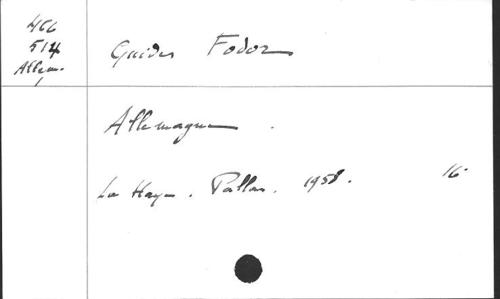 466
514
Allem.
Guides Fodor
Allemagne.
La Haye. Pallas. 1958. 16.